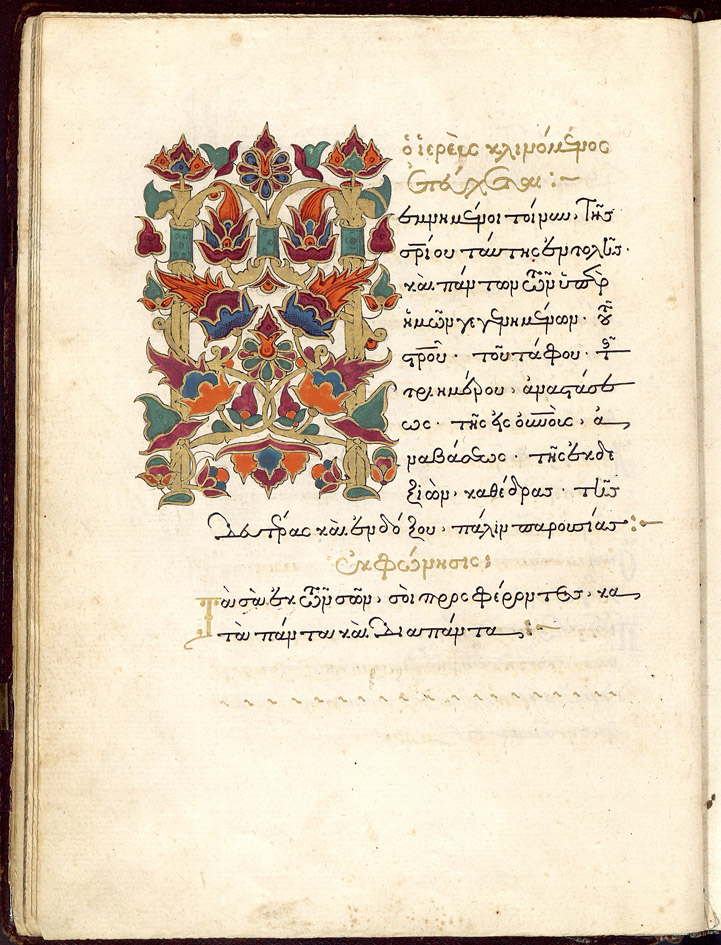 ὁ ἱερεὺς κλινόμενος
ἐπεύχεται :~
εμνημένοι τοίνυν, τῆς
σρίου ταύτης ἐντολῆς·
καὶ πάντων τῶν ὑπὲρ
ἡμῶν γεγενημένων· τοῦ
σροῦ· τοῦ τάφου· τῆς
τριημέρου ἀναστάσε
ως· τῆς εἰς οὐνοὺς ἀ
ναβάσεως· τῆς ἐκ δε
ξιῶν καθέδρας· τῆς
δευτέρας καὶ ἐνδόξου, πάλιν παρουσίας :~
ἐκφώνησις :
Τὰ σὰ ἐκ τῶν σῶν, σοὶ προσφέροντες, κα
τὰ πάντα καὶ διὰ πάντα :~